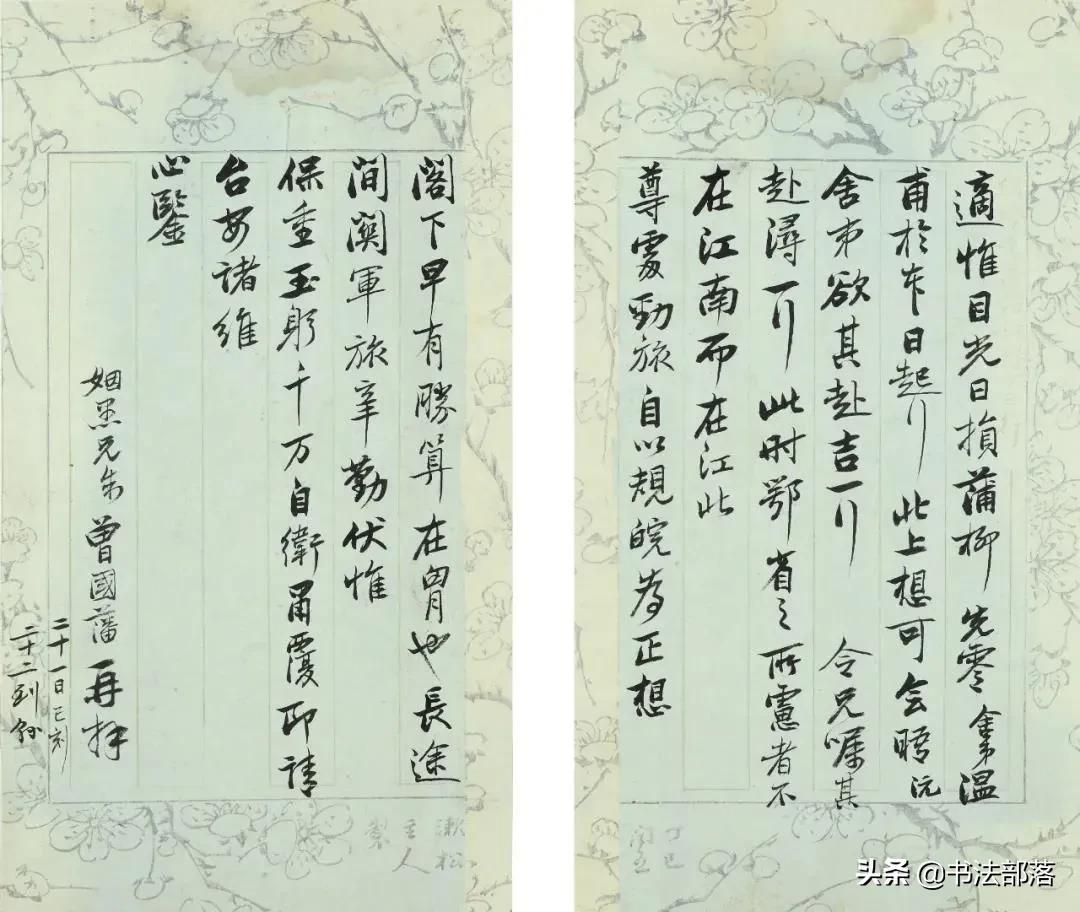 適惟目光日損蒲柳先零舍弟溫
甫於昨日起行北上想可会晤沅
舍弟欲其赴吉一行 令兄嘱其
赴潯一行此时鄂省之所慮者不
在江南而在江北
尊處勁旅自以規皖為正想
丁巳
閏五
閣下早有勝算在胷也長途
間關軍旅辛勤伏惟
保重玉躬千万自衛肅覆即請
台安諸維
心鑒
姻愚兄制曾國藩再拜
二十一日巳刻
二十二到
漱松
主人
製
头条 @书法部落